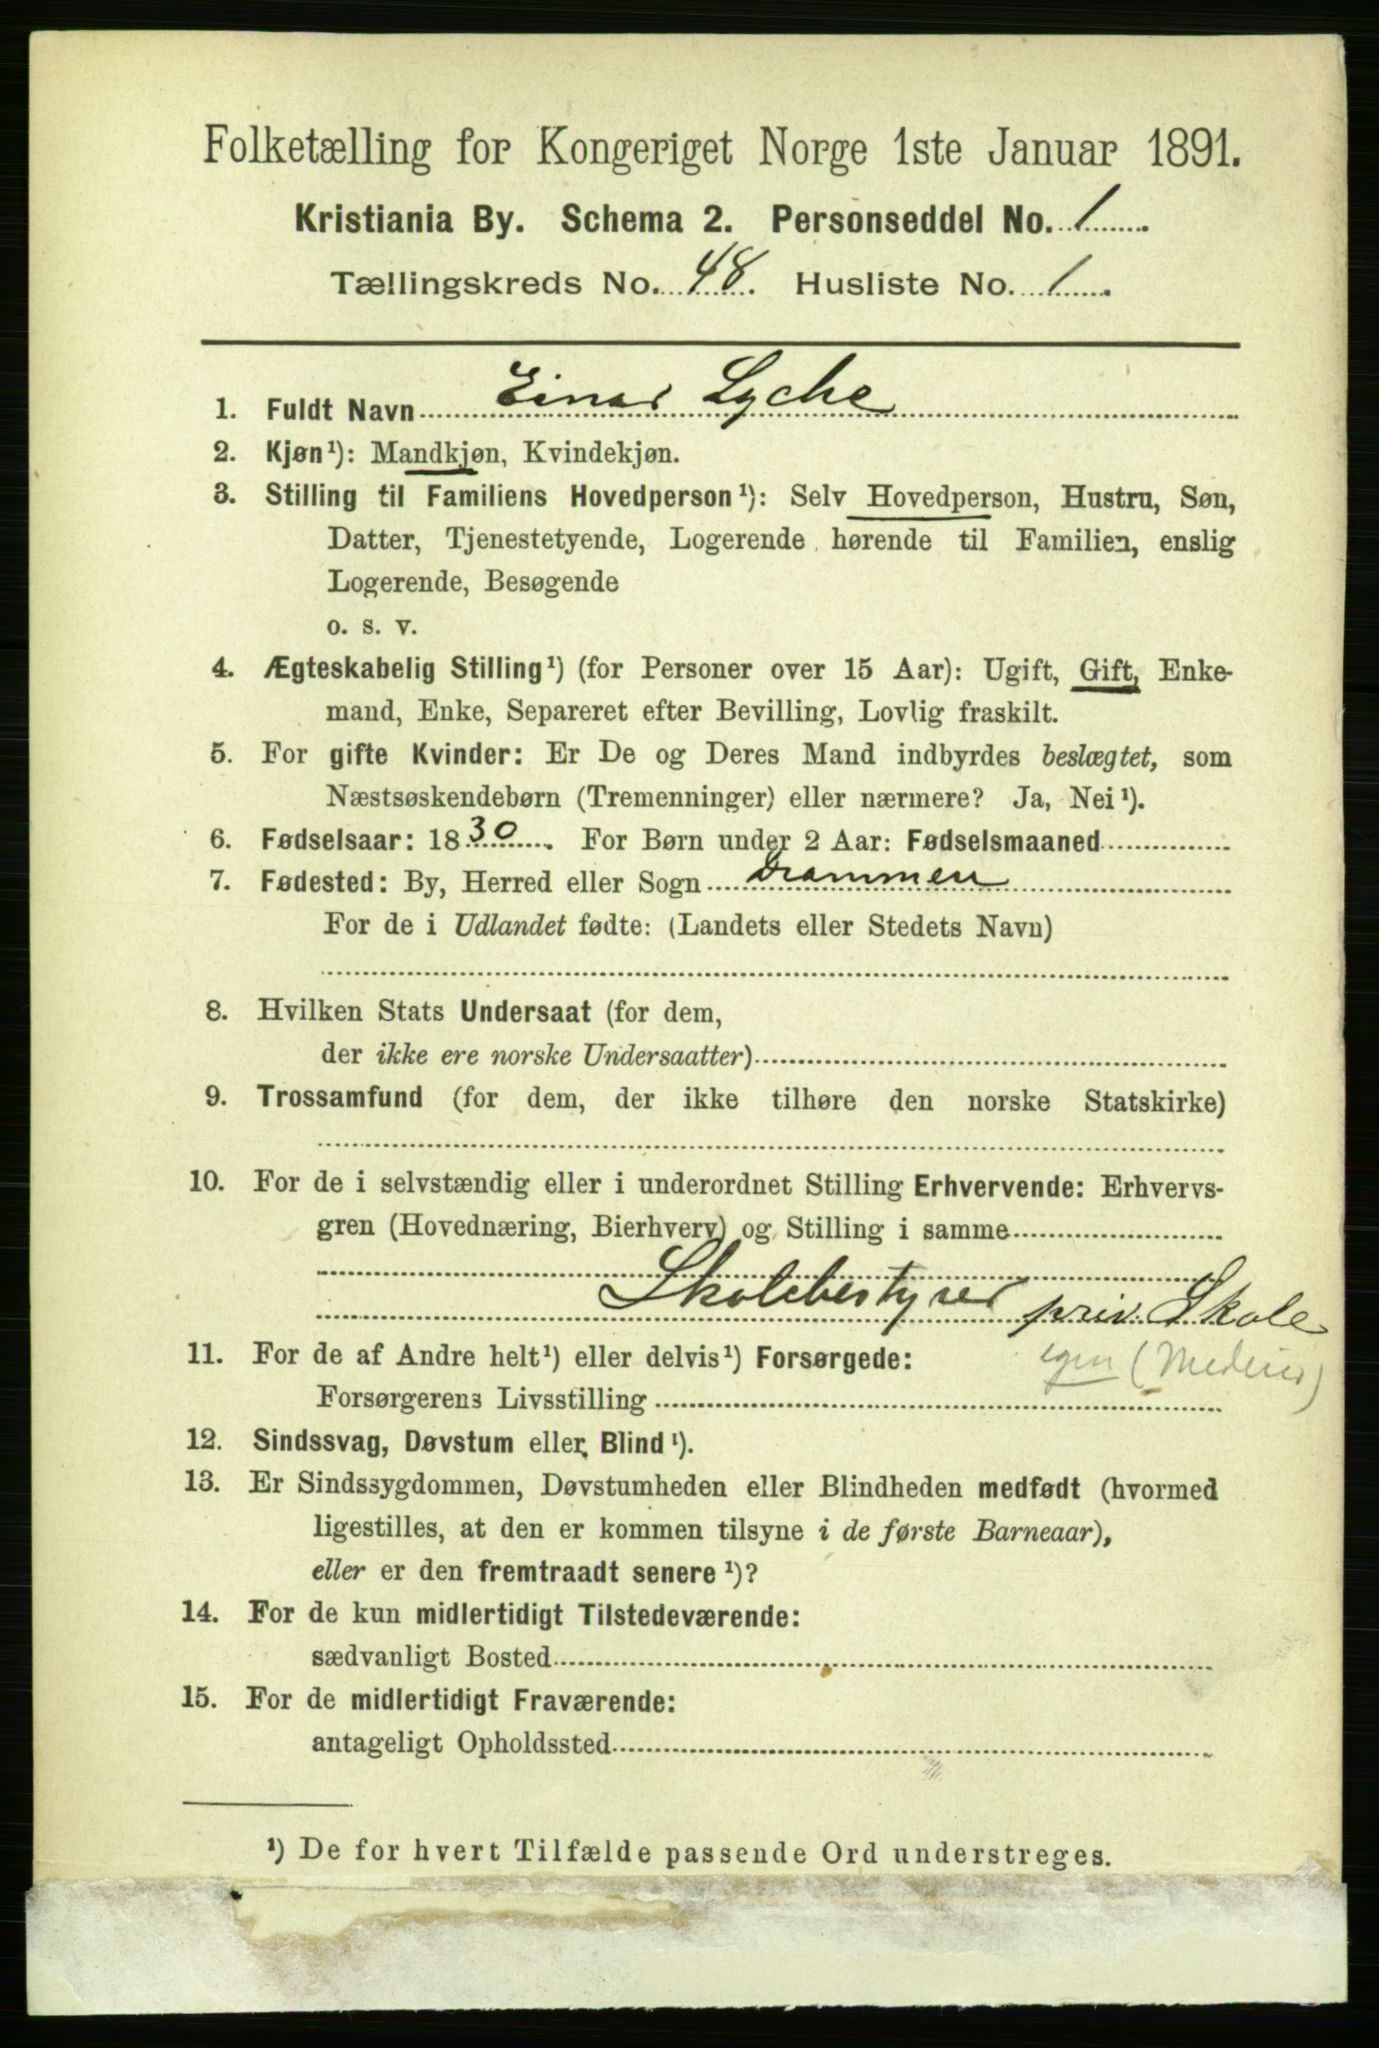 Folketælling for Kongeriget Norge 1ste Januar 1891.
Kristiania By. Schema 2. Personseddel No. 1
Tællingskreds No. 48. Husliste No. 1
1. Fuldt Navn Einar Lyche
2. Kjøn¹): Mandkjøn, Kvindekjøn.
3. Stilling til Familiens Hovedperson¹): Selv Hovedperson, Hustru, Søn,
Datter, Tjenestetyende, Logerende hørende til Familien, enslig
Logerende, Besøgende
o. s. v.
4. Ægteskabelig Stilling¹) (for Personer over 15 Aar): Ugift, Gift, Enke-
mand, Enke, Separeret efter Bevilling, Lovlig fraskilt.
5. For gifte Kvinder: Er De og Deres Mand indbyrdes beslægtet, som
Næstsøskendebørn (Tremenninger) eller nærmere? Ja, Nei¹).
6. Fødselsaar: 1830. For Børn under 2 Aar: Fødselsmaaned
7. Fødested: By, Herred eller Sogn Drammen
For de i Udlandet fødte: (Landets eller Stedets Navn)
8. Hvilken Stats Undersaat (for dem,
der ikke ere norske Undersaatter)
9. Trossamfund (for dem, der ikke tilhøre den norske Statskirke)
10. For de i selvstændig eller i underordnet Stilling Erhvervende: Erhvervs-
gren (Hovednæring, Bierhverv) og Stilling i samme
Skolebestyrer priv. Skole
egen
11. For de af Andre helt¹) eller delvis¹) Forsørgede:
Forsørgerens Livsstilling
12. Sindssvag, Døvstum eller Blind¹).
13. Er Sindssygdommen, Døvstumheden eller Blindheden medfødt (hvormed
ligestilles, at den er kommen tilsyne i de første Barneaar),
eller er den fremtraadt senere¹)?
14. For de kun midlertidigt Tilstedeværende:
sædvanligt Bosted
15. For de midlertidigt Fraværende:
antageligt Opholdssted
¹) De for hvert Tilfælde passende Ord understreges.